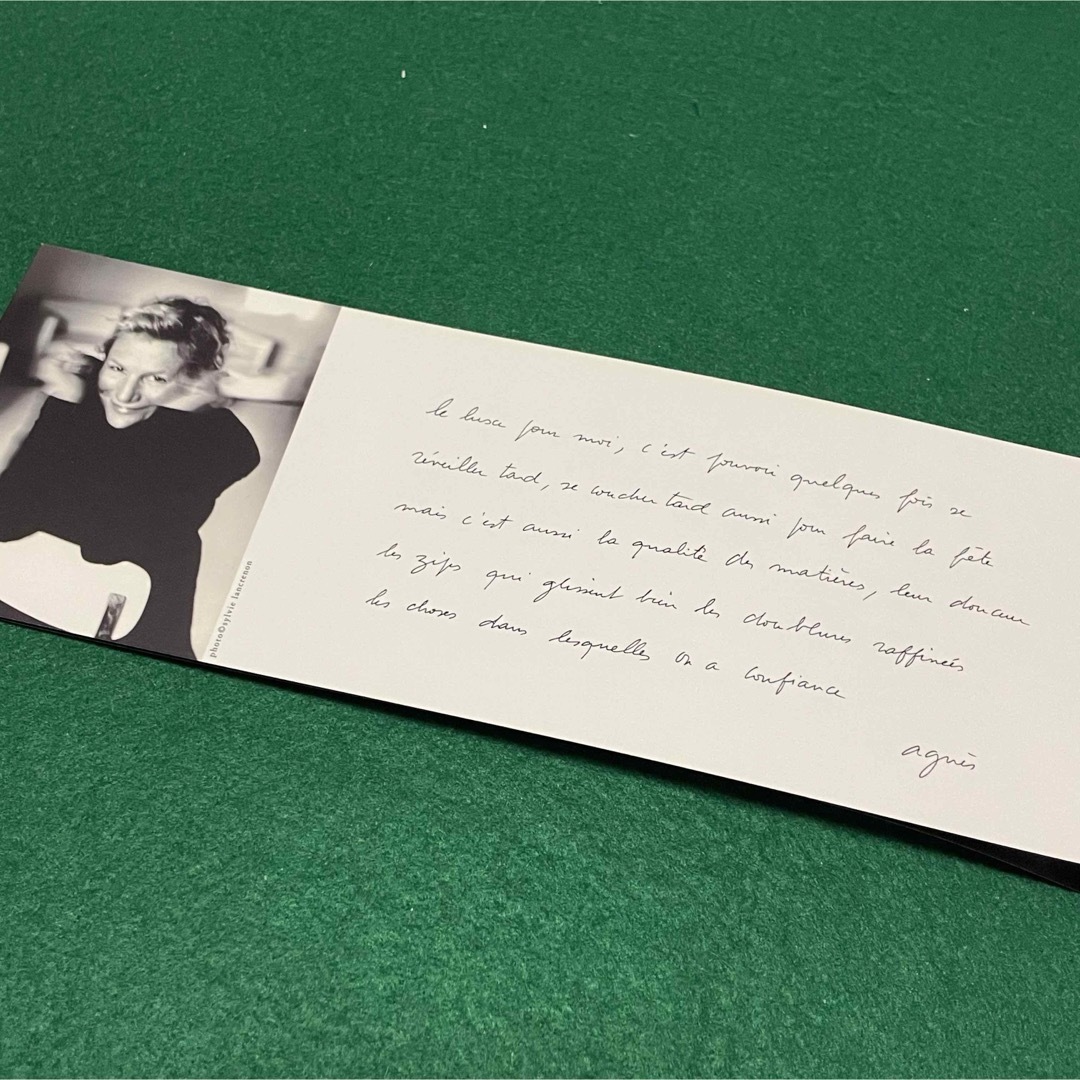 le luxe pour moi, c'est pouvoir quelques fois se
réveiller tard, se coucher tard aussi pour faire la fête
mais c'est aussi la qualité des matières, leur douceur
les zips qui glissent bien les doublures raffinées
les choses dans lesquelles on a confiance
agnès
photo©sylvie lancrenon